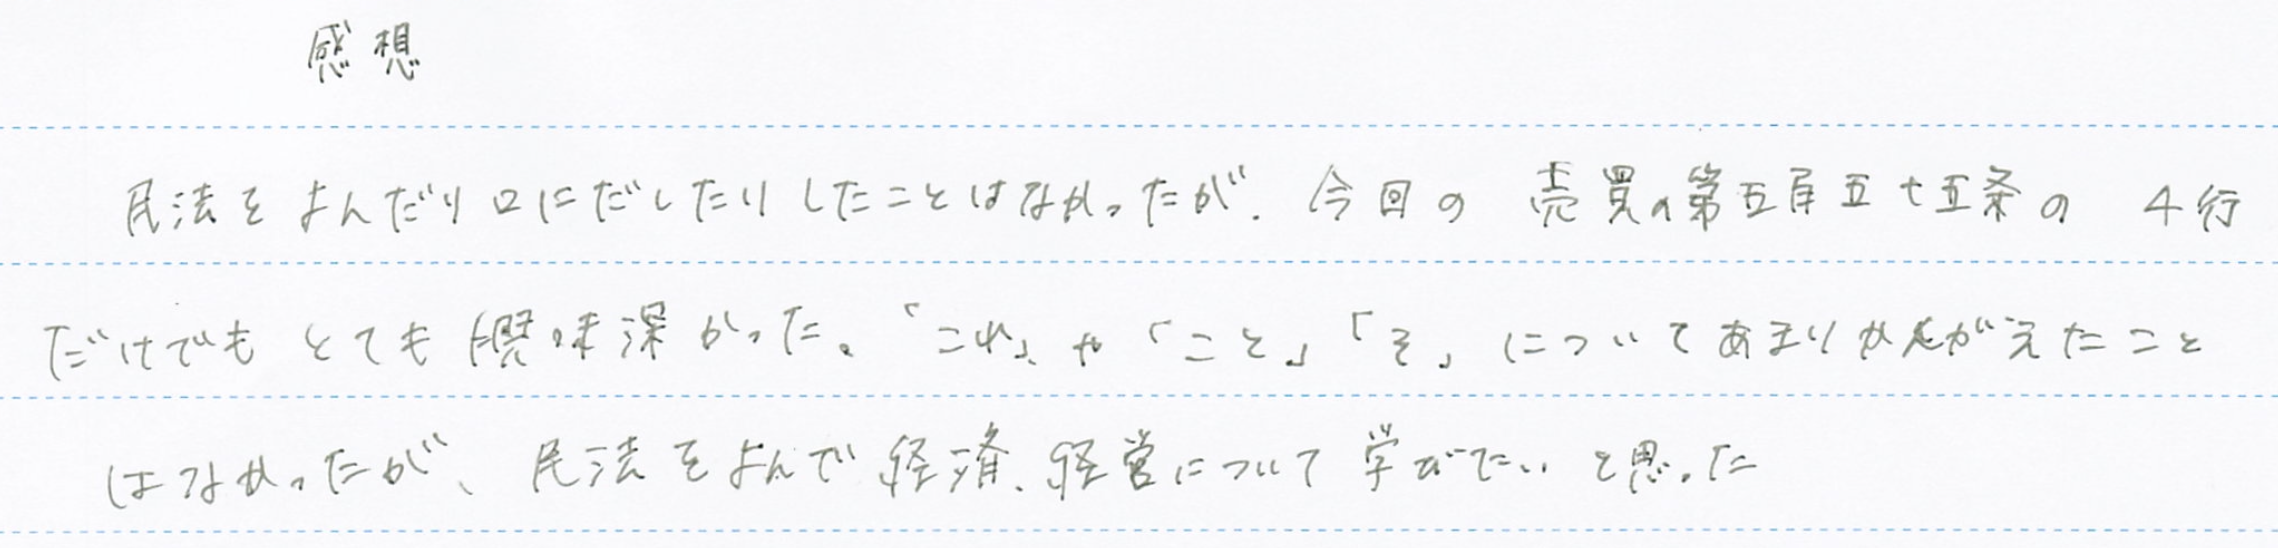 感想
民法をよんだり口にだしたりしたことはなかったが、今回の 売買の第五百五十五条の 4行
だけでも とても興味深かった。「これ」や「こと」「そ」についてあまりかんがえたこと
はなかったが、民法をよんで経済、経営について学びたいと思った